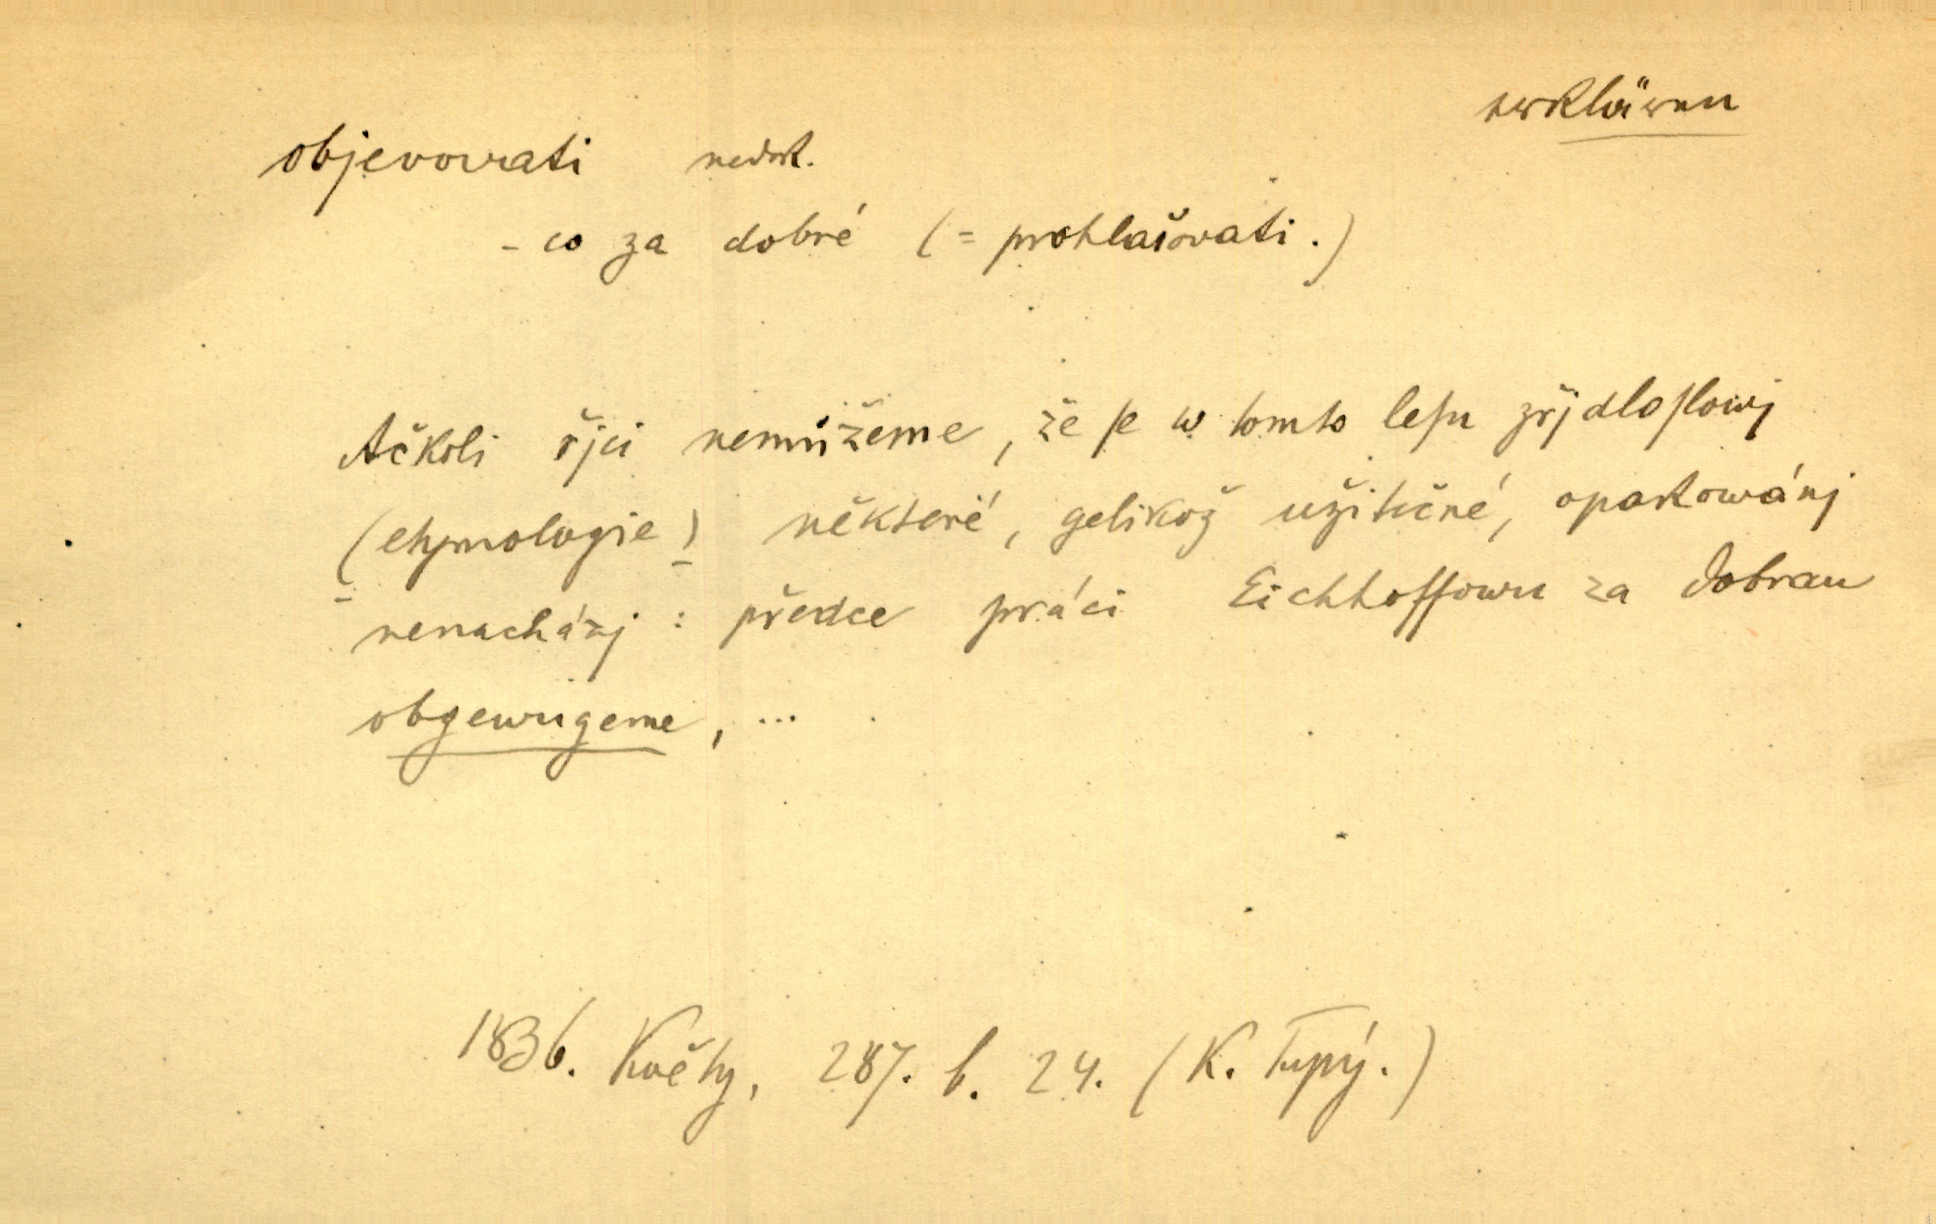 erklären
objevovati nedok.
- co za dobré (= prohlašovati.)
Ačkoli řjci nemůžeme, že ſe w tomto leſu zřjdloſlowj
(etymologie) některé, gelikož užitečné, opakowánj
nenacházj : předce práci Eichhoffowu za dobrau
obgewugeme, ...
1836. Květy, 287. b. 24. (K. Tupý.)